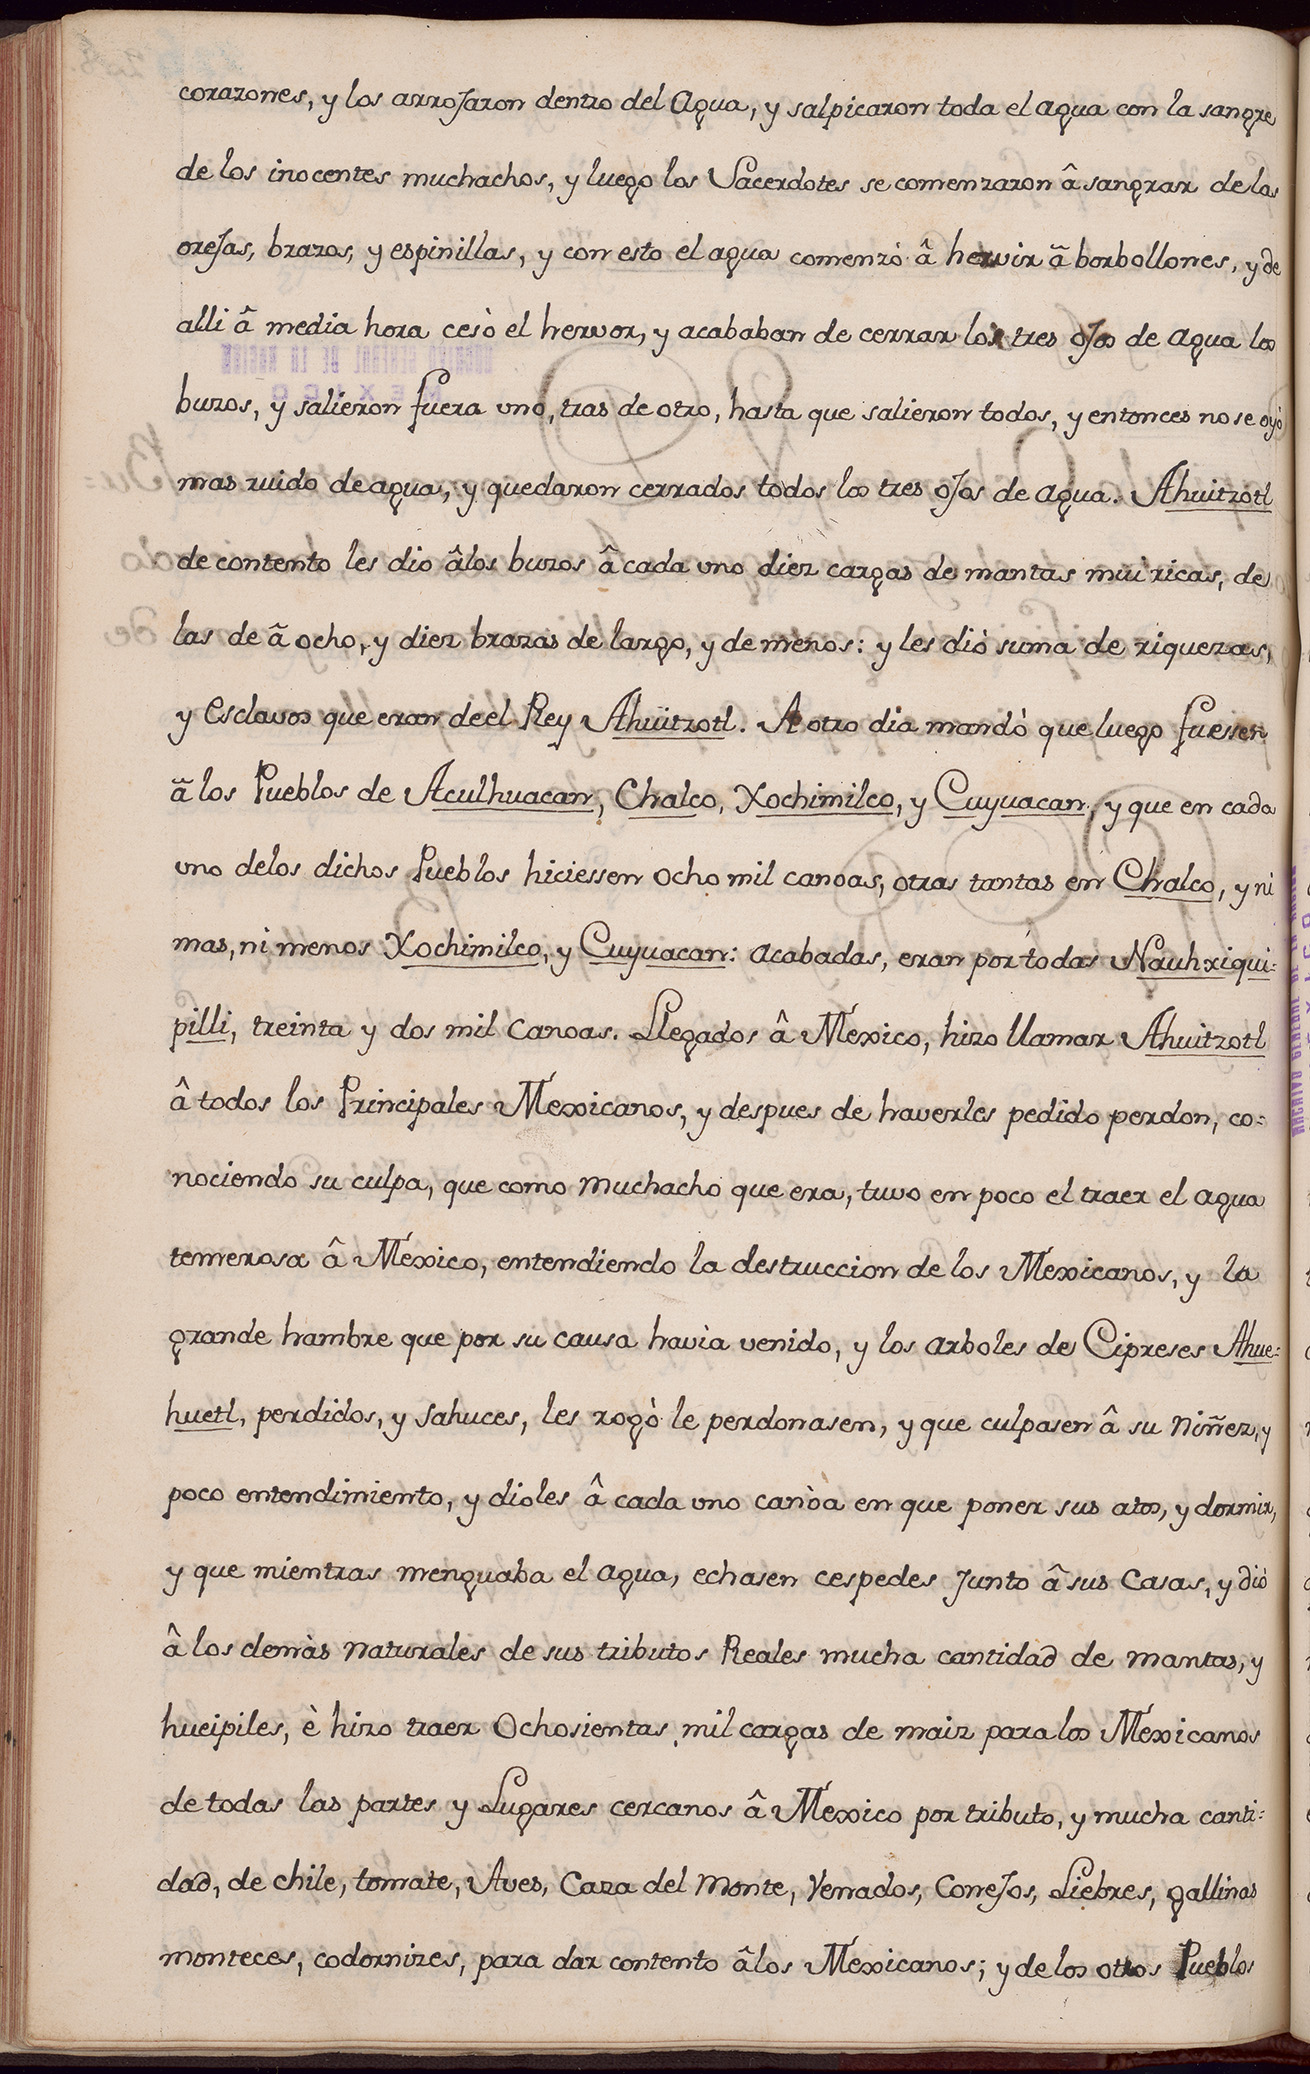 corazones, y los arroJaron dentro del Agua, y salpicaron toda el agua con la sangre
de los inocentes muchachos, y luego los Sacerdotes se comenzaron â sangrar de las
oreJas, brazos, y espinillas, y con esto el agua comenzò â hervir â borbollones, y de
alli â media hora cesò el hervor, y acababan de cerrar los tres oJos de agua los
buzos, y salieron fuera uno, tras de otro, hasta que salieron todos, y entonces no se oyò
mas ruido de agua, y quedaron cerrados todos los tres oJos de agua. Ahuitzotl
de contento les dio âlos buzos â cada uno diez cargas de mantas mui ricas, de
las de â ocho, y diez brazas de largo, y de menos: y les diò suma de riquezas,
y Esclavos que eran deel Rey Ahuitzotl. A otro dia mandò que luego fuessen
â los Pueblos de Aculhuacan, Chalco, Xochimilco, y Cuyuacan, y que en cada
uno delos dichos Pueblos hiciessen ocho mil canoas, otras tantas en Chalco, y ni
mas, ni menos Xochimilco, y Cuyuacan: acabadas, eran por todas Nauhxiqui=
pilli, treinta y dos mil Canoas. Llegados â Mexico, hizo llamar Ahuitzotl
â todos los Principales Mexicanos, y despues de haverles pedido perdon, co=
nociendo su culpa, que como muchacho que era, tuvo en poco el traer el agua
temerosa â Mexico, entendiendo la destruccion de los Mexicanos, y la
grande hambre que por su causa havia venido, y los arboles de Cipreses Ahue=
huetl, perdidos, y Sahuces, les rogò le perdonasen, y que culpasen â su Niñez, y
poco entendimiento, y dioles â cada uno canòa en que poner sus atos, y dormir,
y que mientras menguaba el agua, echasen cespedes Junto â sus Casas, y diò
â los demàs Naturales de sus tributos Reales mucha cantidad de mantas, y
hueipiles, è hizo traer Ochosientas mil cargas de maiz para los Mexicanos
de todas las partes y Lugares cercanos â Mexico por tributo, y mucha canti=
dad, de chile, tomate, Aves, Caza del Monte, Venados, ConeJos, Liebres, gallinas
monteces, codornizes, para dar contento âlos Mexicanos; y de los otros Pueblos